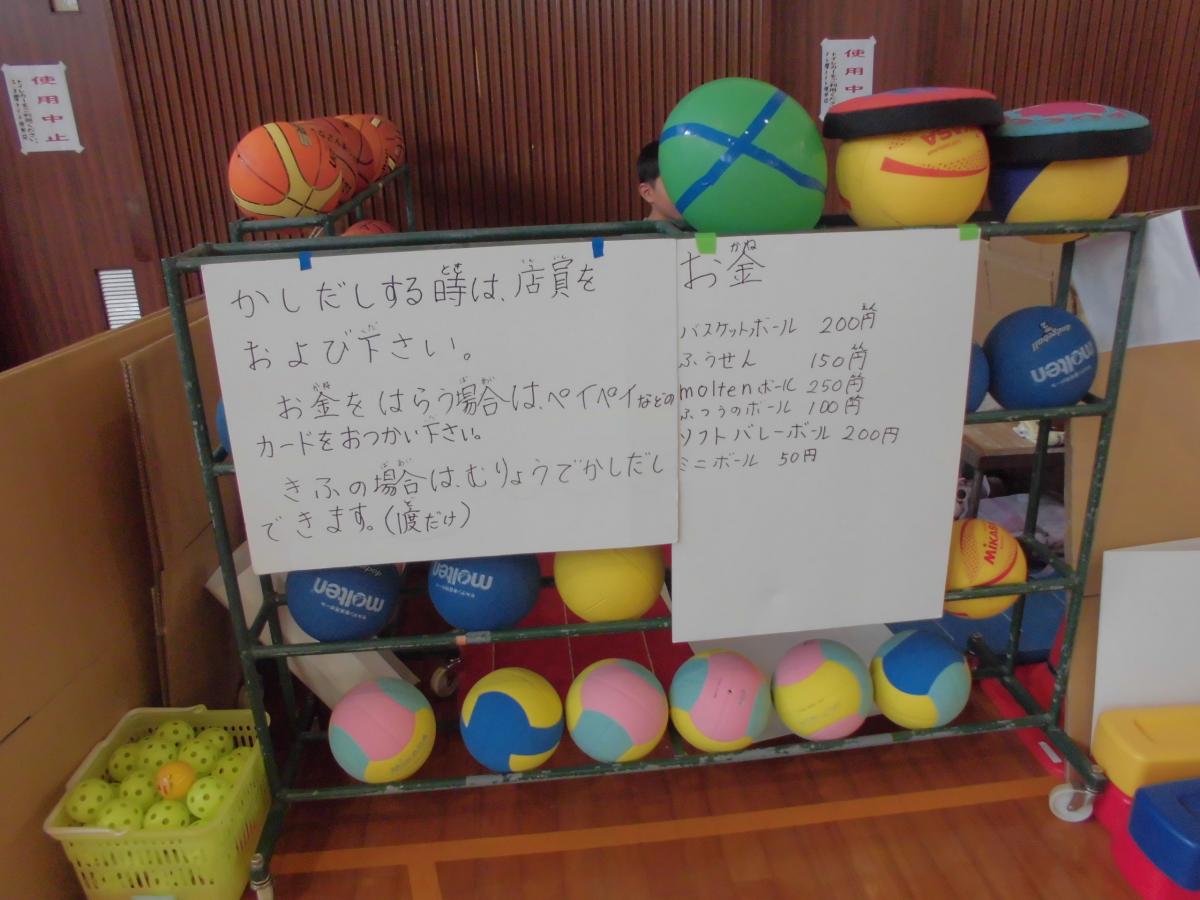 使用中止
使用中
かしだしする時は、店員を
および下さい。
お金をはらう場合は、ペイペイなどの
カードをおつかい下さい。
きふの場合は、むりょうでかしだし
できます。(1度だけ)
お金
バスケットボール 200円
ふうせん 150円
moltenボール 250円
ふつうのボール 100円
ソフトバレーボール 200円
ミニボール 50円
molten
molten
molten
MIKASA